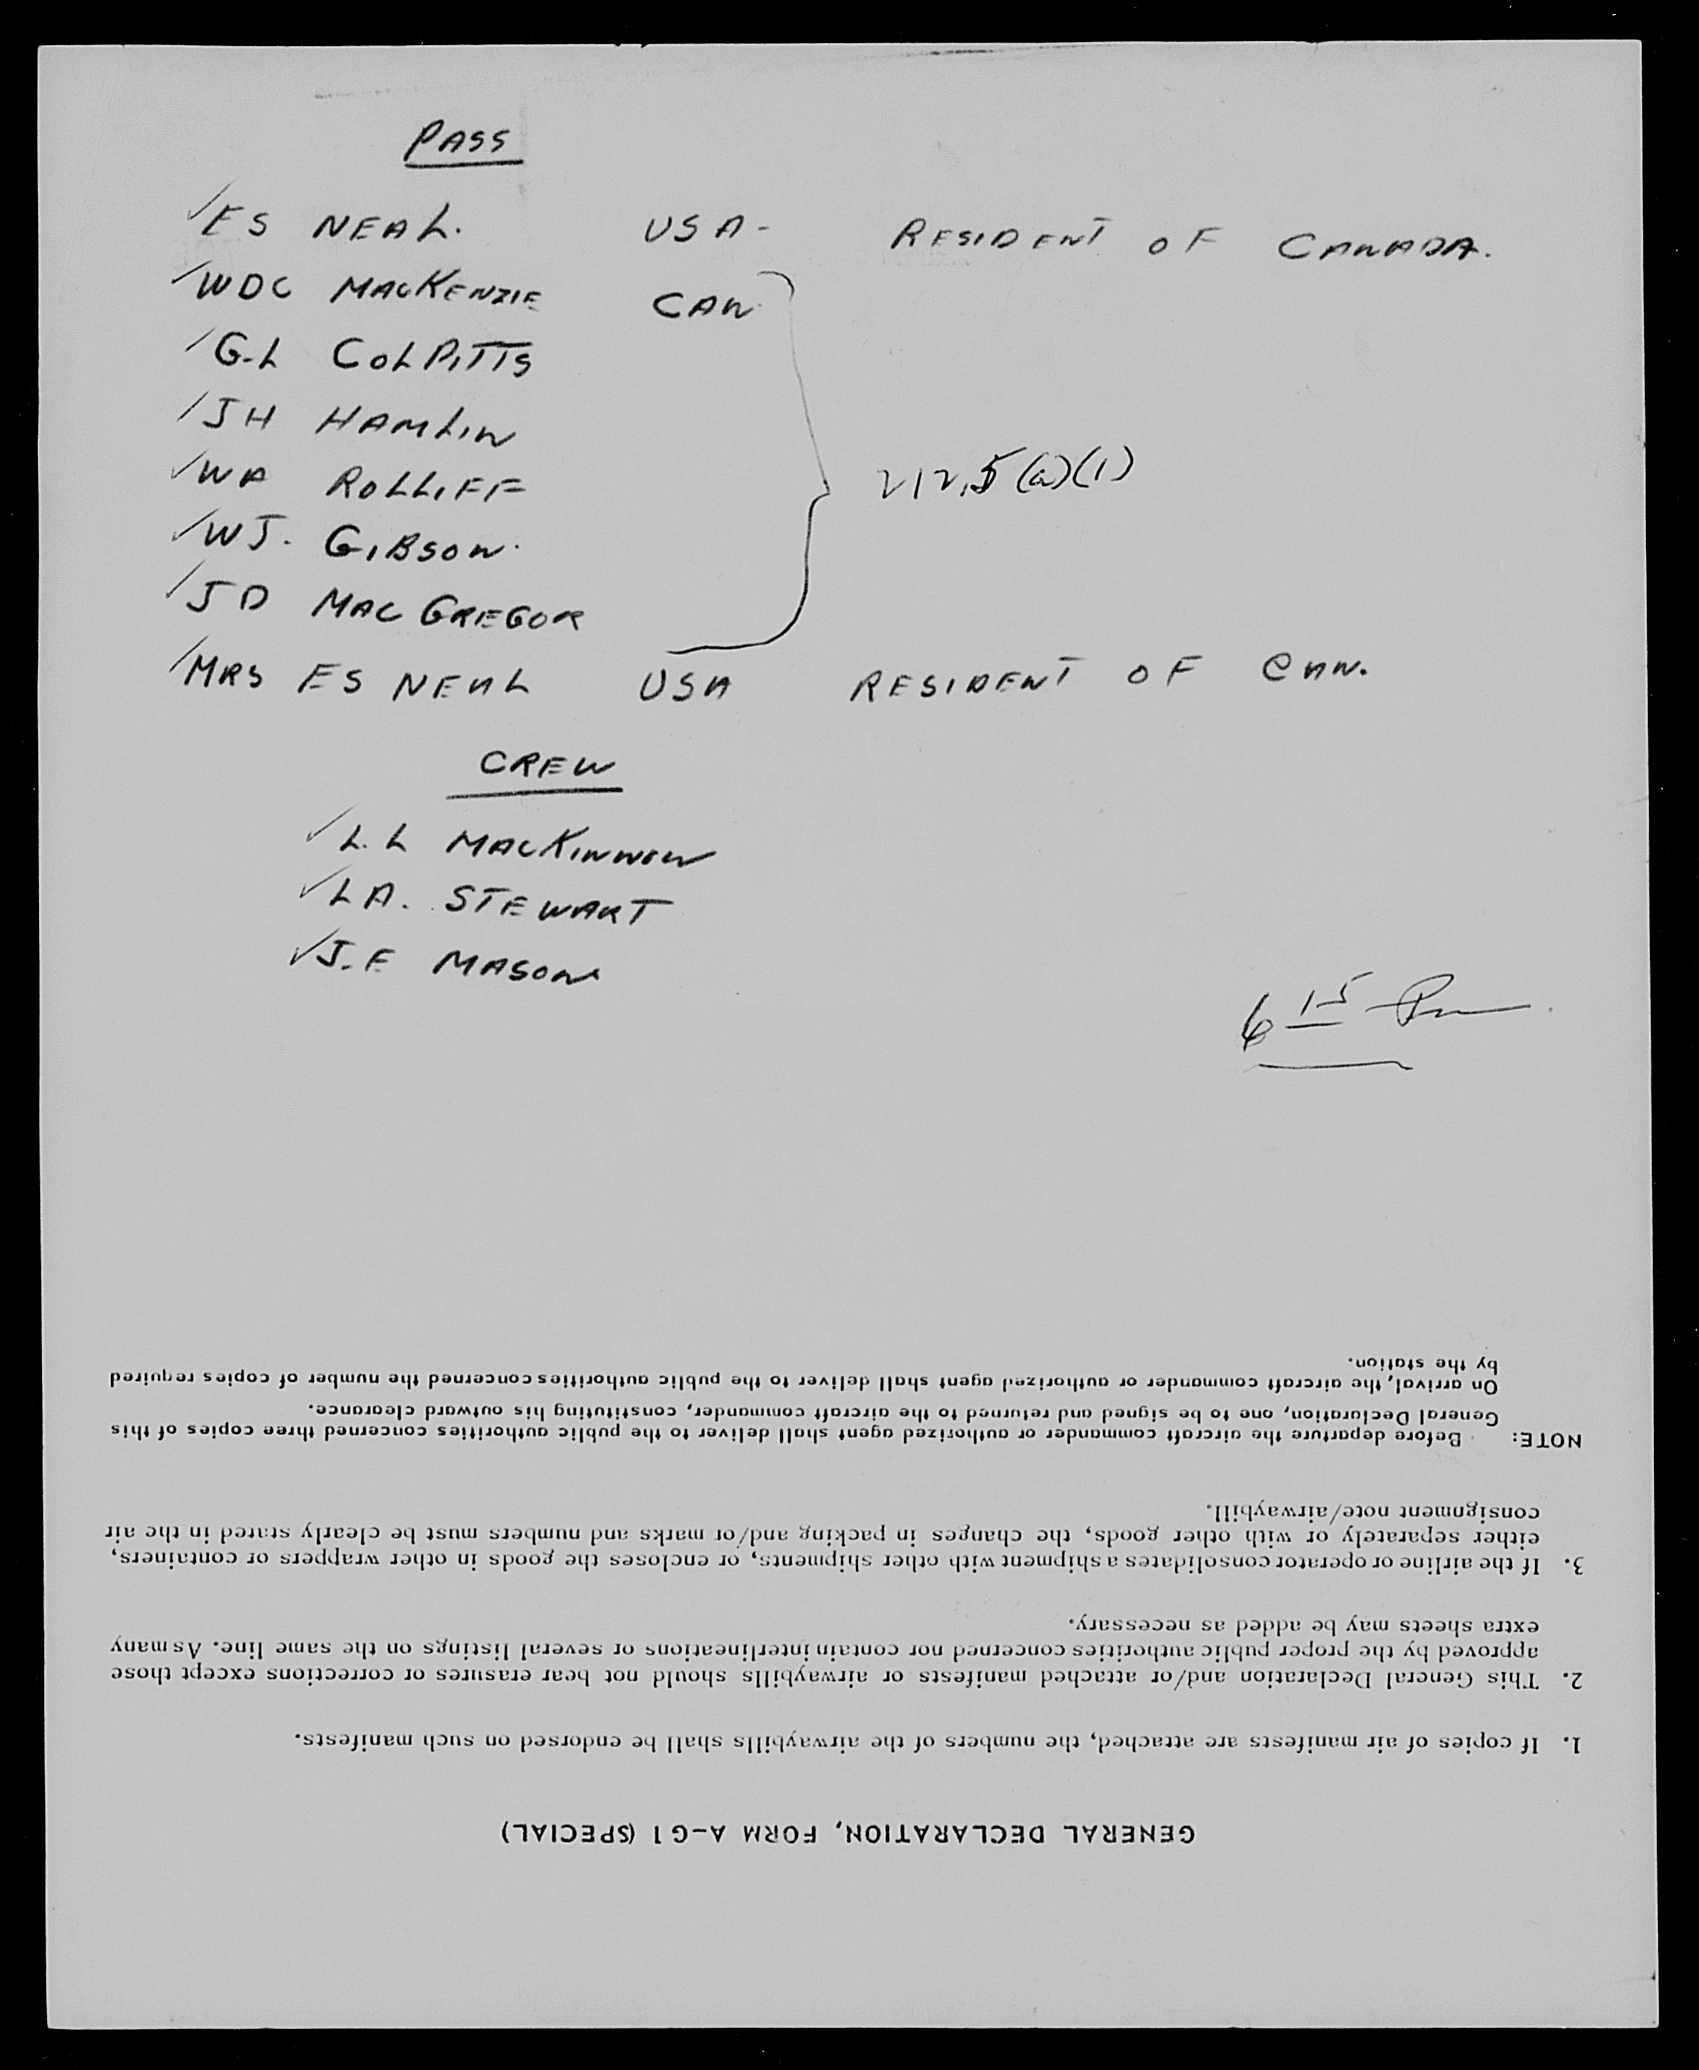 PASS
ES NEAL. USA - RESIDENT OF CANADA.
WDC MACKENZIE CAN
G.L COLPITTS
JH HAMLIN
WA ROLLIFF
212.5(a)(1)
WJ. GIBSON.
JD MAC GREGOR
MRS ES NEAL USA RESIDENT OF CAN.
CREW
L.L MACKINNON
LA. STEWART
J.E MASON
6 15 Pm
GENERAL DECLARATION, FORM A-G1 (SPECIAL)
1. If copies of air manifests are attached, the numbers of the airwaybills shall be endorsed on such manifests.
2. This General Declaration and/or attached manifests or airwaybills should not bear erasures or corrections except those
approved by the proper public authorities concerned nor contain interlineations or several listings on the same line. As many
extra sheets may be added as necessary.
3. If the airline or operator consolidates a shipment with other shipments, or encloses the goods in other wrappers or containers,
either separately or with other goods, the changes in packing and/or marks and numbers must be clearly stated in the air
consignment note/airwaybill.
NOTE: Before departure the aircraft commander or authorized agent shall deliver to the public authorities concerned three copies of this
General Declaration, one to be signed and returned to the aircraft commander, constituting his outward clearance.
On arrival, the aircraft commander or authorized agent shall deliver to the public authorities concerned the number of copies required
by the station.